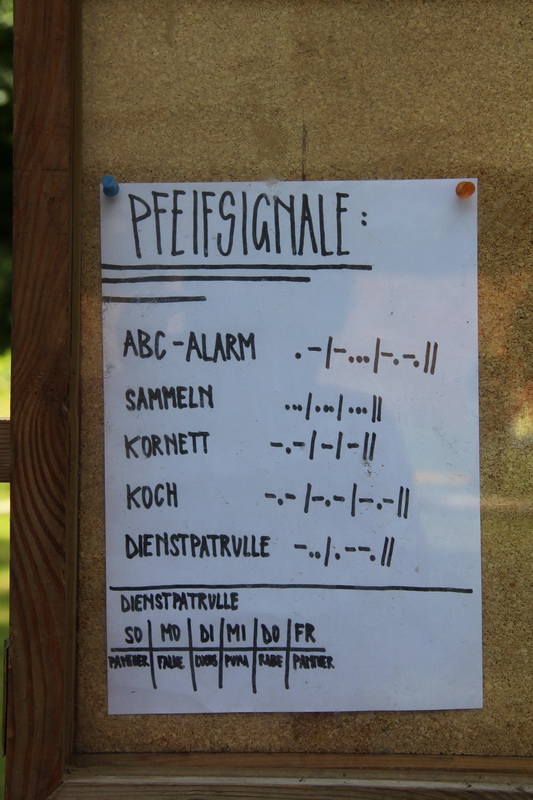 PFEIFSIGNALE:
ABC-ALARM .-|-...|-.-.||
SAMMELN ...|...|...||
KORNETT -.-|-|-||
KOCH -.-|-.-|-.-||
DIENSTPATRULLE -..|.--.||
DIENSTPATRULLE
SO | MO | DI | MI | DO | FR
PANTHER | FALKE | PUMA | RABE | PANTHER